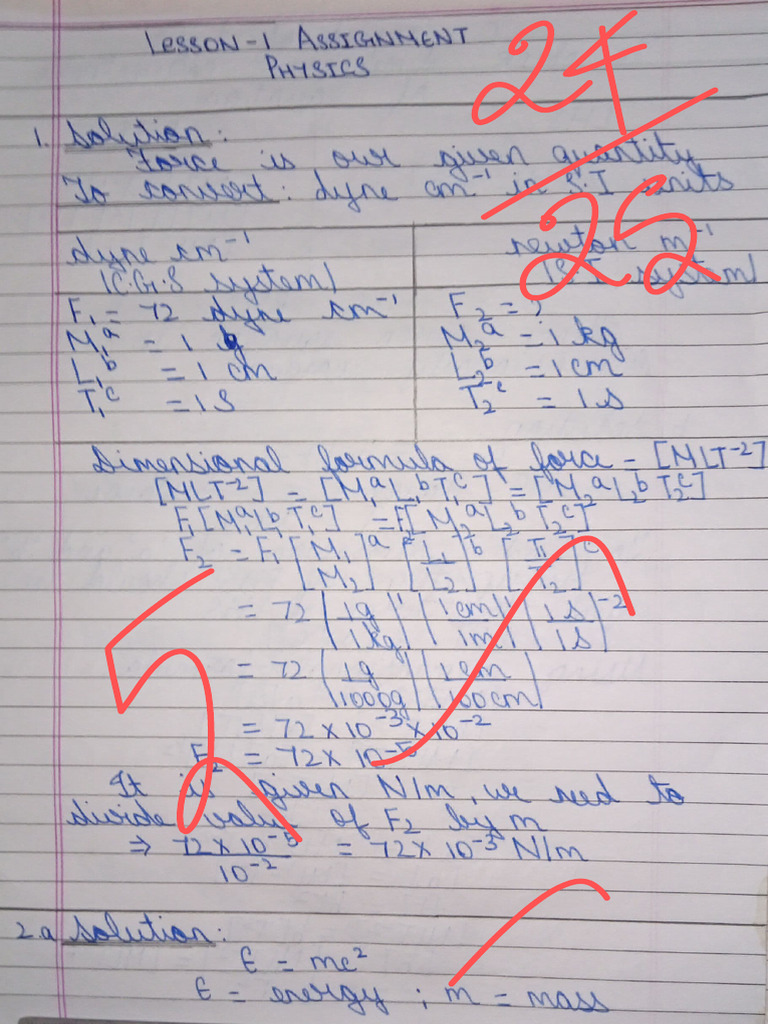 LESSON-1 ASSIGNMENT
PHYSICS
24/25
1. Solution:
Force is our given quantity
To convert: dyne cm⁻¹ in S.I units
dyne cm⁻¹
(C.G.S system)
F₁ = 72 dyne cm⁻¹
M₁ᵃ = 1 g
L₁ᵇ = 1 cm
T₁ᶜ = 1 s
newton m⁻¹
(S.I system)
F₂ = ?
M₂ᵃ = 1 kg
L₂ᵇ = 1 cm
T₂ᶜ = 1 s
Dimensional formula of force = [MLT⁻²]
[MLT⁻²] = [M₁ᵃL₁ᵇT₁ᶜ] = [M₂ᵃL₂ᵇT₂ᶜ]
F₁[M₁ᵃL₁ᵇT₁ᶜ] = F₂[M₂ᵃL₂ᵇT₂ᶜ]
F₂ = F₁ [M₁/M₂]ᵃ [L₁/L₂]ᵇ [T₁/T₂]ᶜ
= 72 [1g/1kg]¹ [1cm/1m]¹ [1s/1s]⁻²
= 72 [1g/1000g] [1cm/100cm]
= 72 × 10⁻³ × 10⁻²
F₂ = 72 × 10⁻⁵
5
It is given N/m, we need to
divide value of F₂ by m
⇒ 72 × 10⁻⁵/10⁻² = 72 × 10⁻³ N/m
2.a Solution:
E = mc²
E = energy ; m = mass